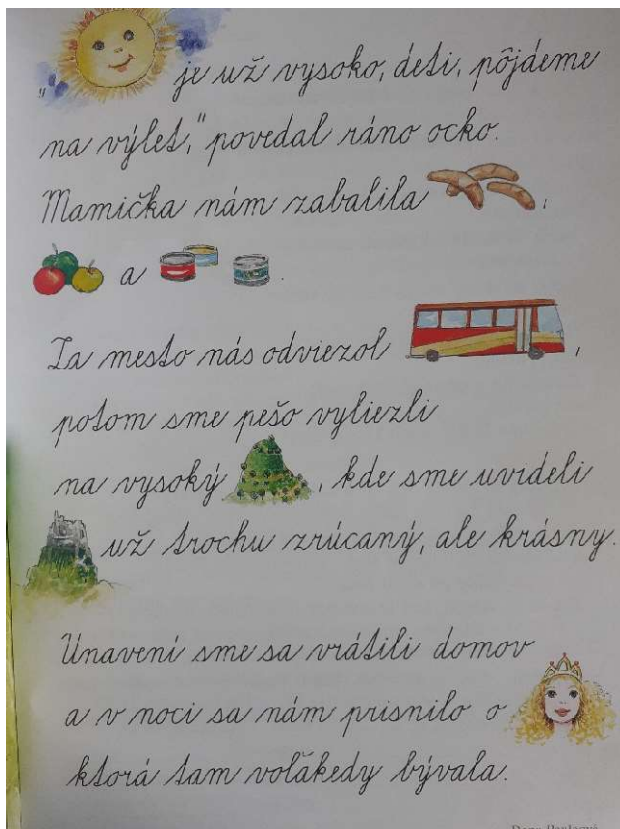 „ je už vysoko, deti, pôjdeme
na výlet,“ povedal ráno ocko.
Mamička nám zabalila ,
a .
Za mesto nás odviezol ,
potom sme pešo vyliezli
na vysoký , kde sme uvideli
už trochu zrúcaný, ale krásny.
Unavení sme sa vrátili domov
a v noci sa nám prisnilo o
ktorá tam voľakedy bývala.